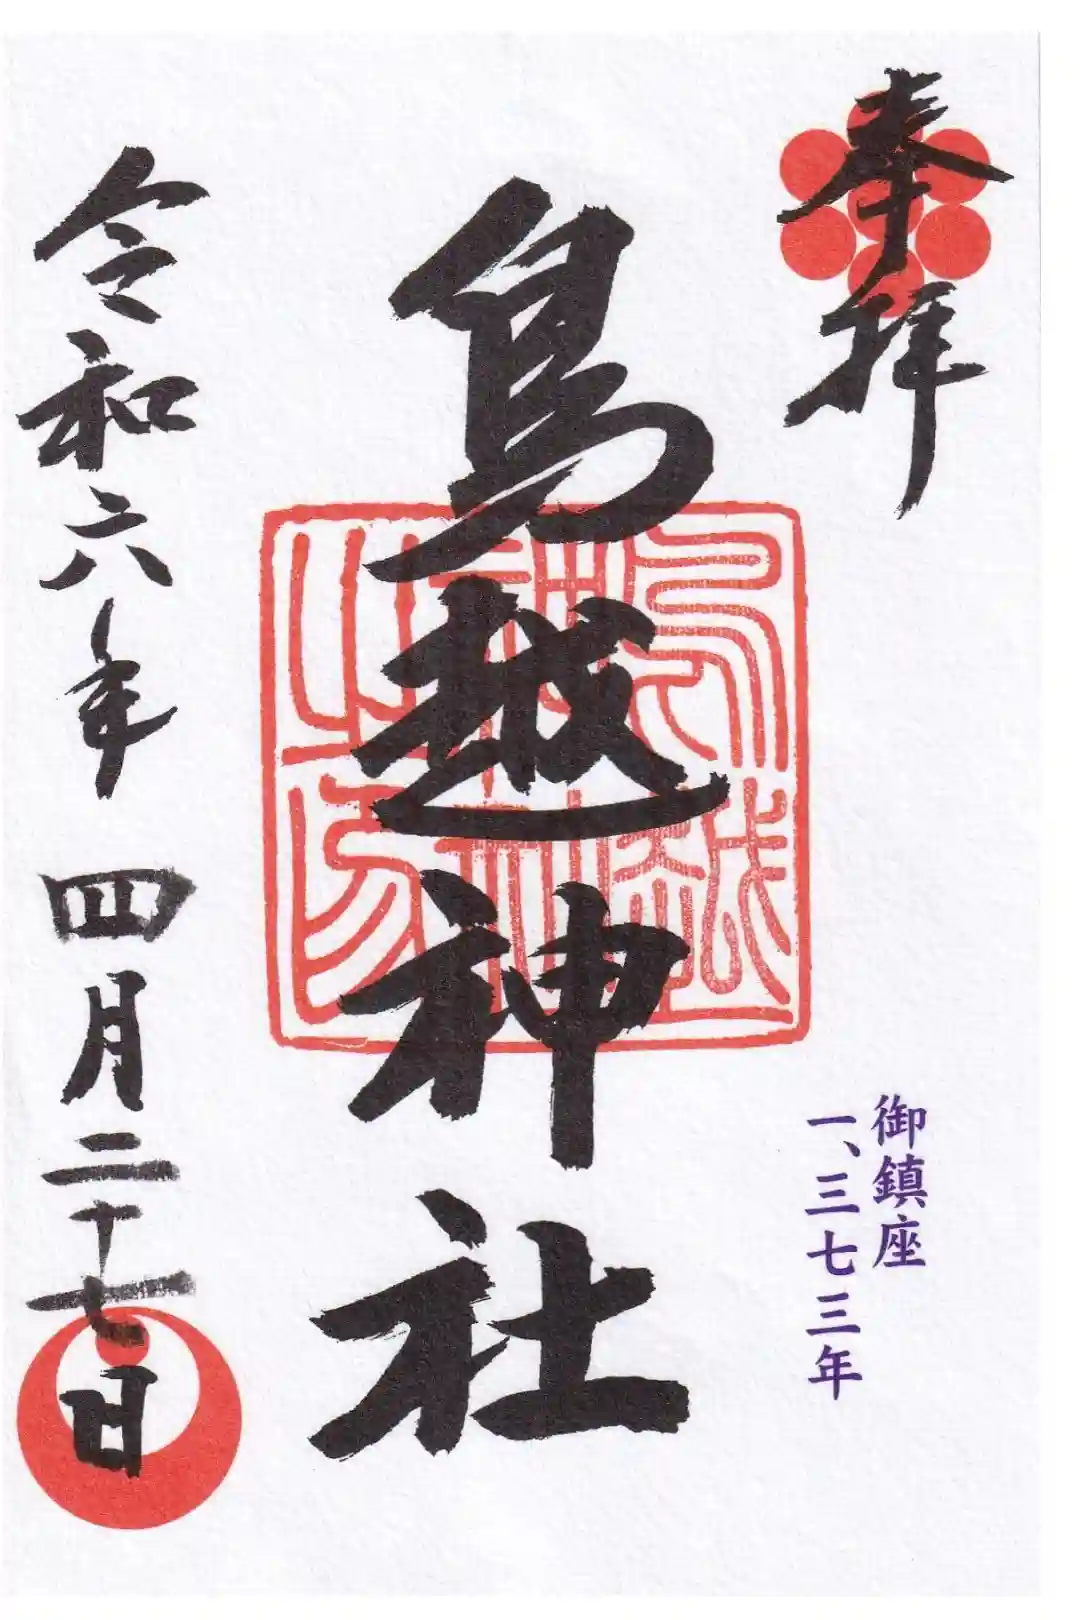 奉拝
御鎮座
一、三七三年
鳥越神社
鳥越
神社
之印
令和六年四月二十七日